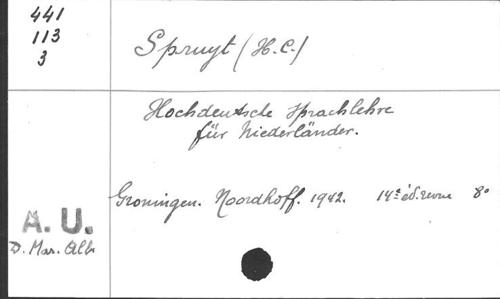 441
113
3
Spruyt (H.C.)
Hochdeutsche Sprachlehre
für Niederländer.
Groningen. Noordhoff. 1942. 14e éd. revue 8°
A.U.
D. Mar. Alb